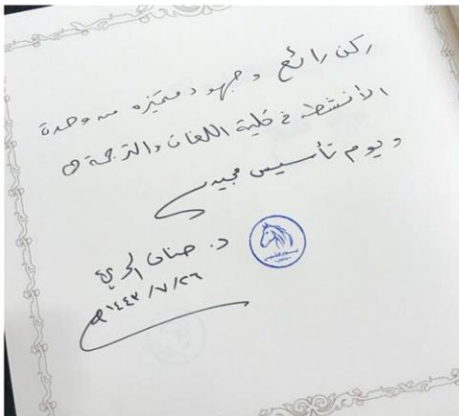 ركن رائع وجهود متميزه من وحدة
الأنشطة في كلية اللغات والترجمة
ويوم تأسيس مجيد
د. حنان
١٤٤٣/٧/٢٦هـ